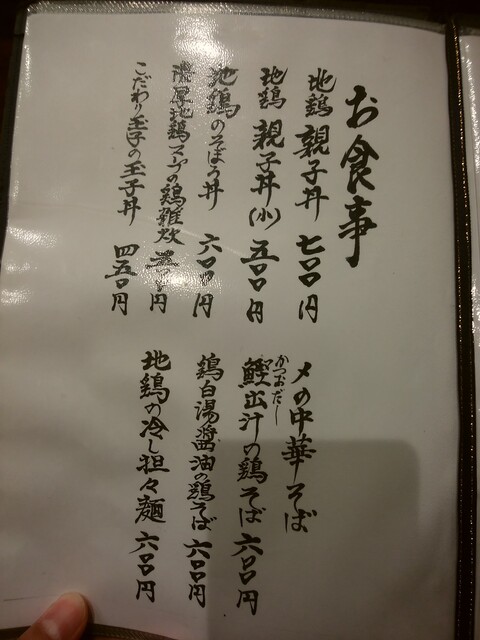 お食事
地鶏 親子丼 七〇〇円
地鶏 親子丼(小) 五〇〇円
地鶏のそぼろ丼 六〇〇円
濃厚地鶏スープの鶏雑炊 五〇〇円
こだわり玉子の玉子丼 四五〇円
〆の中華そば
かつおだし
鰹出汁の鶏そば 六〇〇円
鶏白湯醤油の鶏そば 六〇〇円
地鶏の冷し担々麺 六〇〇円